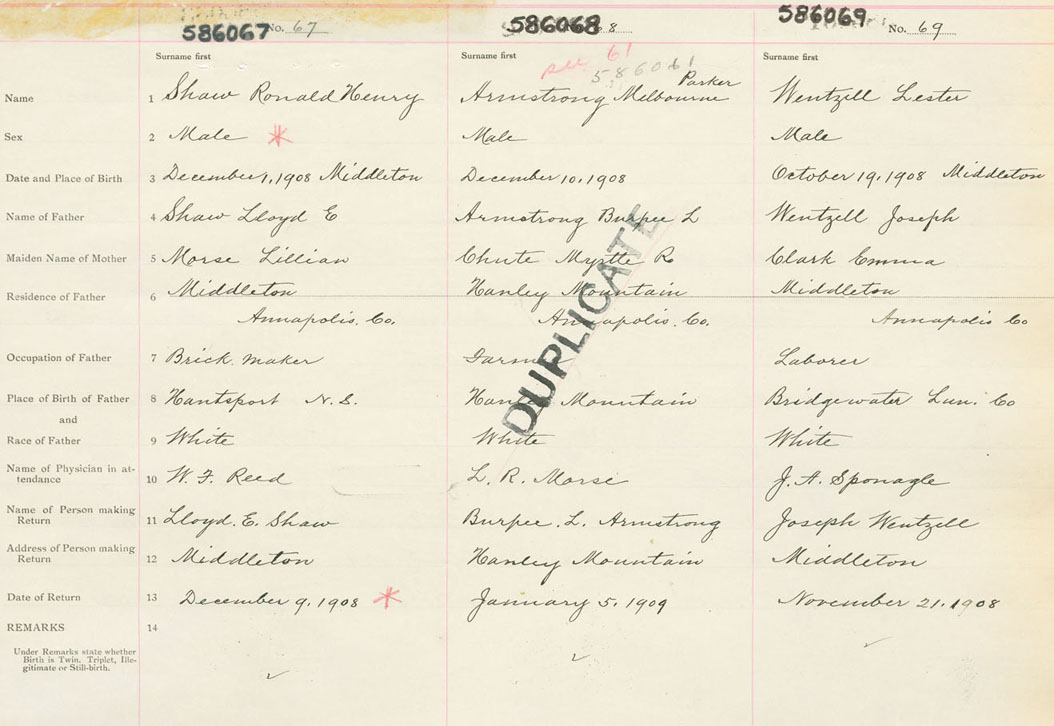 586067 No. 67
586068 68
586069 No. 69
Surname first Surname first Surname first
see 61
586061
Parker
Name 1 Shaw Ronald Henry Armstrong Melbourne Wentzell Lester
Sex 2 Male * Male Male
Date and Place of Birth 3 December 1, 1908 Middleton December 10, 1908 October 19, 1908 Middleton
Name of Father 4 Shaw Lloyd E Armstrong Burpee L Wentzell Joseph
Maiden Name of Mother 5 Morse Lillian Chute Myrtle R Clark Emma
Residence of Father 6 Middleton Hanley Mountain Middleton
Annapolis. Co. Annapolis. Co. Annapolis Co
DUPLICATE
Occupation of Father 7 Brick. maker Farmer Laborer
Place of Birth of Father 8 Hantsport N.S. Hanley Mountain Bridgewater Lun. Co
and
Race of Father 9 White White White
Name of Physician in at-
tendance 10 W. F. Reed L. R. Morse J. A. Sponagle
Name of Person making
Return 11 Lloyd. E. Shaw Burpee. L. Armstrong Joseph Wentzell
Address of Person making
Return 12 Middleton Hanley Mountain Middleton
Date of Return 13 December 9, 1908 * January 5, 1909 November 21, 1908
REMARKS 14
Under Remarks state whether
Birth is Twin. Triplet, Ille-
gitimate or Still-birth.